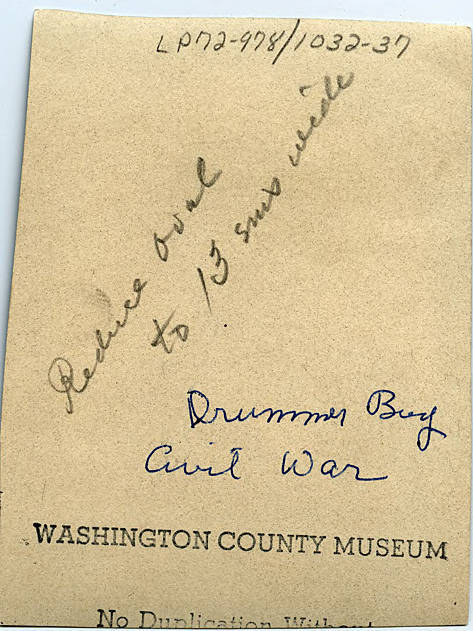 LP72-978/1032-37
Reduce oval
to 13 ems wide
Drummer Boy
Civil War
WASHINGTON COUNTY MUSEUM
No Duplication Without